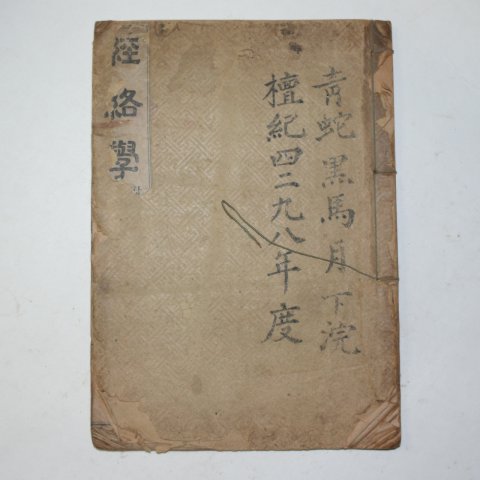 青蛇黑馬月下浣
檀紀四二九八年度
經絡學